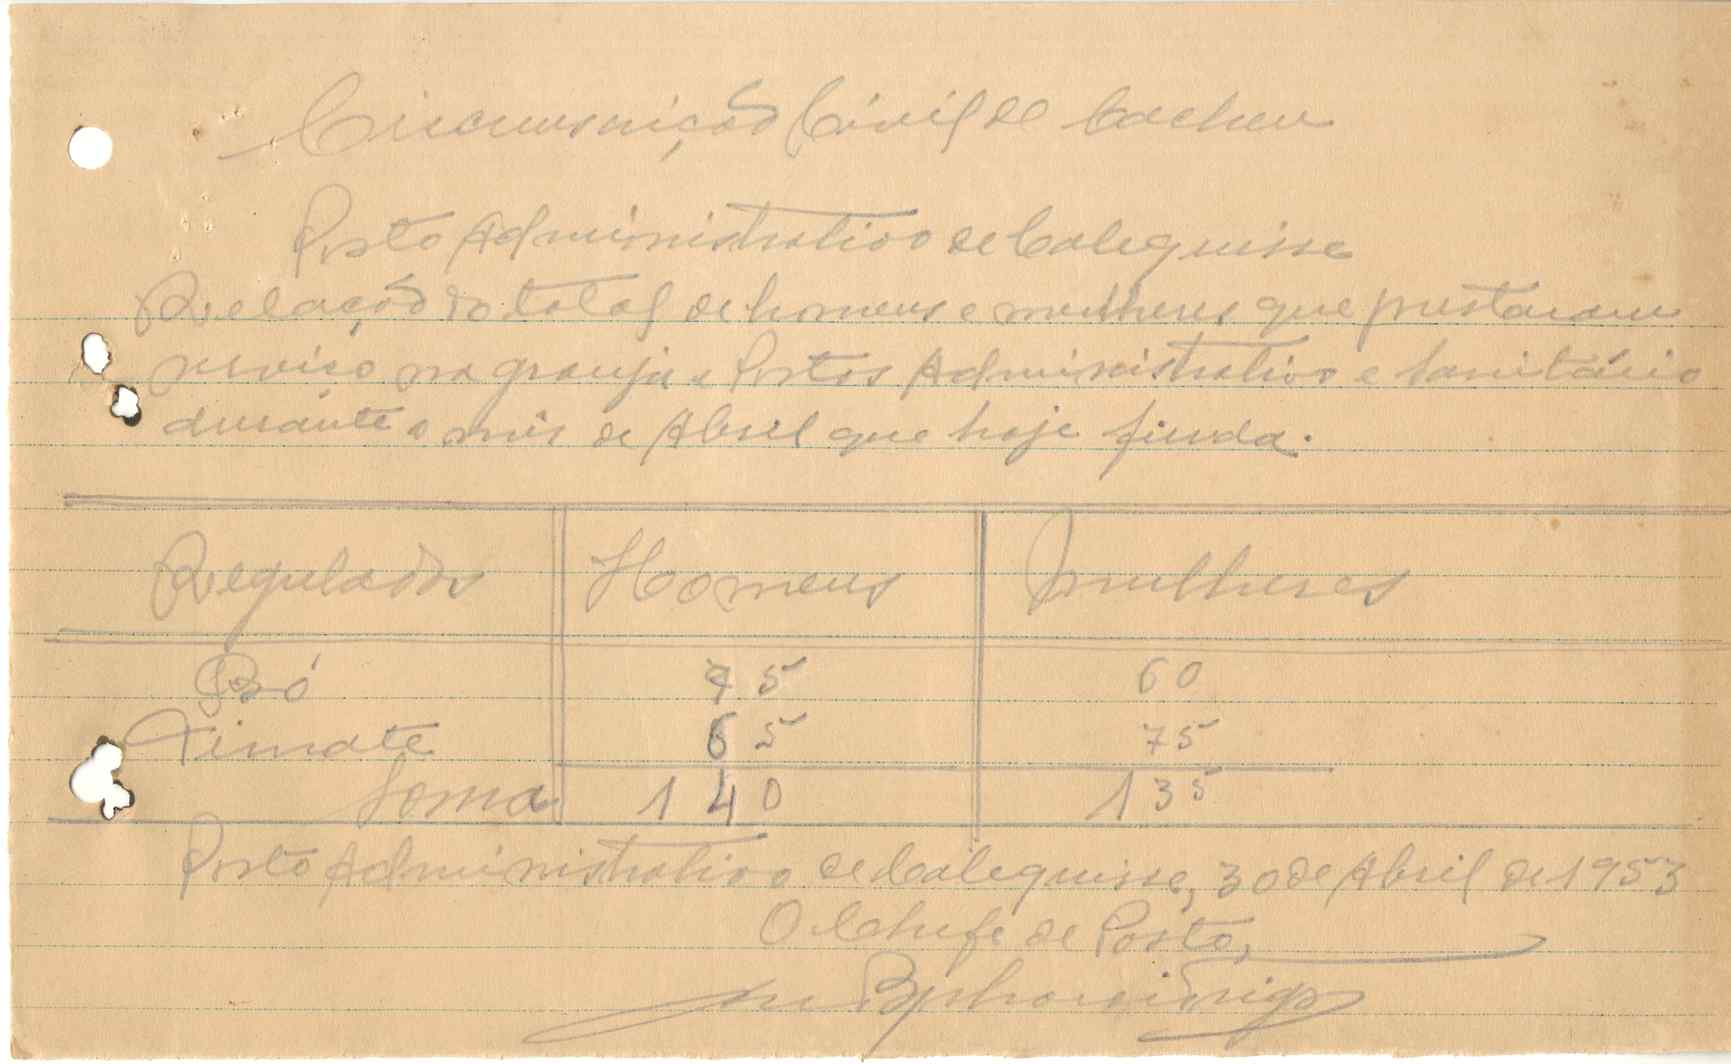 Circunscrição Civil de Cacheu
Posto Administrativo de Calequisse
Relação do total de homens e mulheres que prestaram
serviço na granja e Postos Administrativo e Sanitário
durante o mês de Abril que hoje finda.
Regulados Homens Mulheres
Bó 75 60
Timate 65 75
Soma 140 135
Posto Administrativo de Calequisse, 30 de Abril de 1953
O Chefe de Posto,